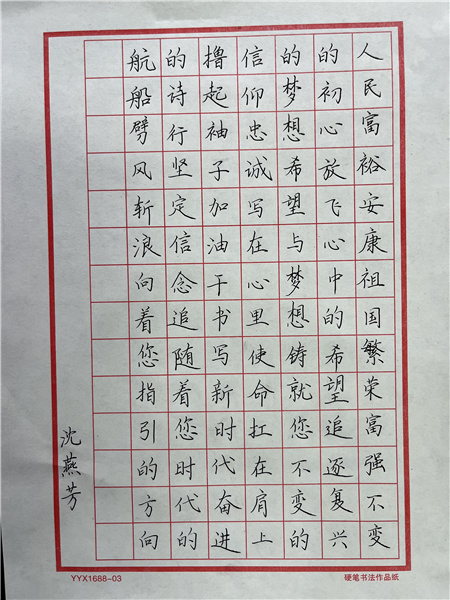 人民富裕安康祖国繁荣富强不变
的初心放飞心中的希望追逐复兴
的梦想希望与梦想铸就您不变的
信仰忠诚写在心里使命扛在肩上
撸起袖子加油干书写新时代奋进
的诗行坚定信念追随着您时代的
航船劈风斩浪向着您指引的方向
沈燕芳
YYX1688-03
硬笔书法作品纸